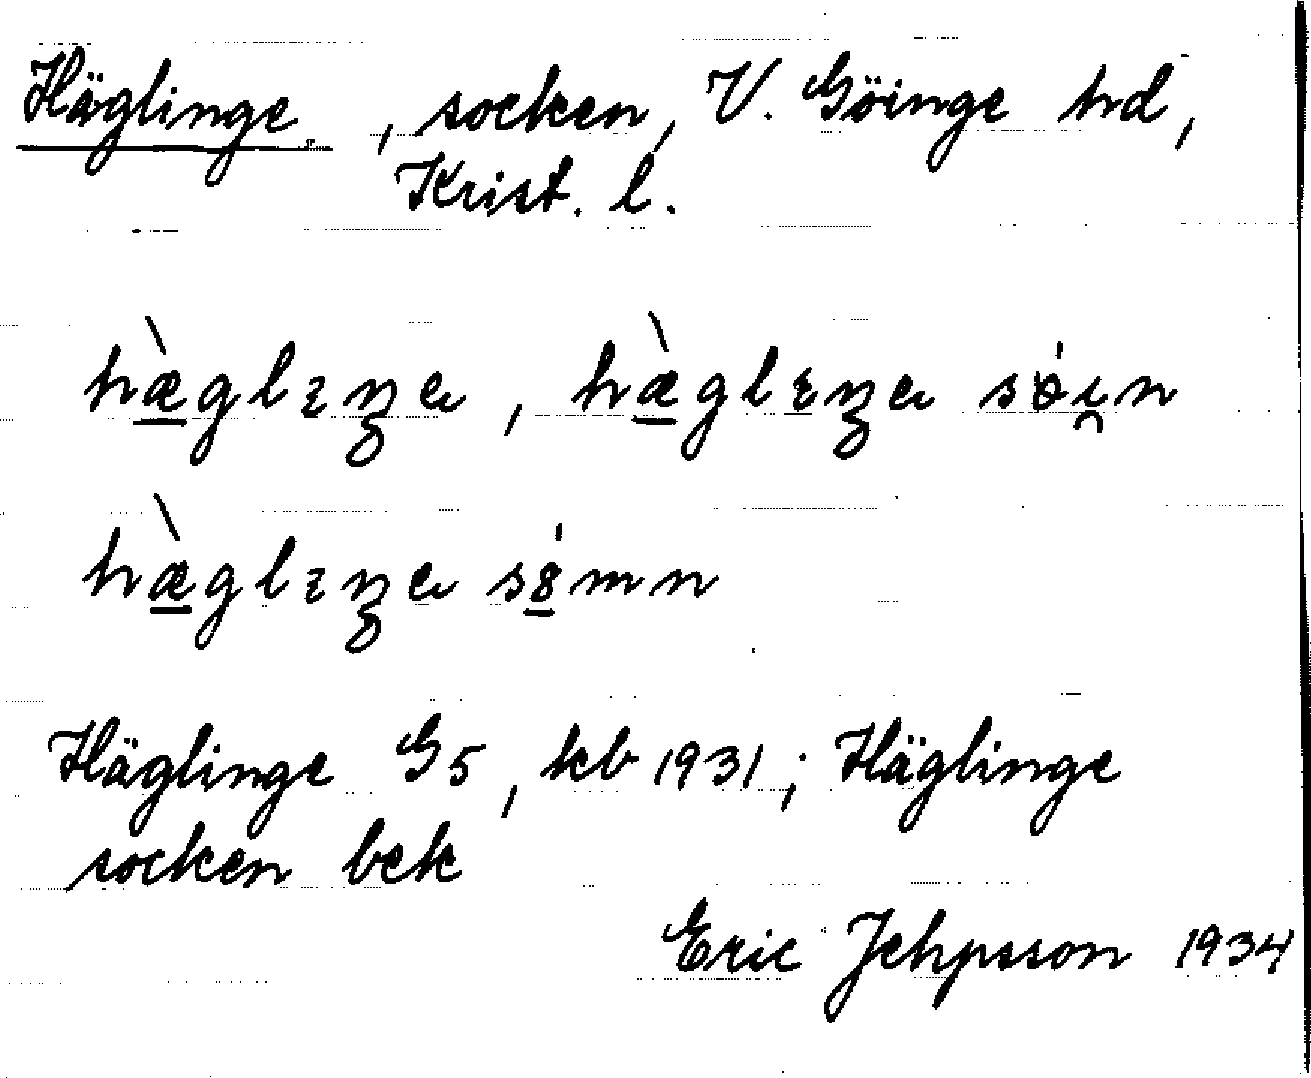 Häglinge, socken, V. Göinge hd,
Krist. l.
hæ̀glɪŋe, hæ̀glɪŋe søi̯n
hæ̀glɪŋe s8mn
Häglinge G5, kb 1931; Häglinge
socken bek
Eric Jehpsson 1934